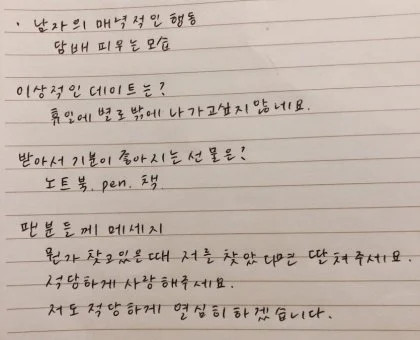 · 남자의 매력적인 행동
담배 피우는 모습
이상적인 데이트는?
휴일에 별로 밖에 나가고싶지 않네요.
받아서 기분이 좋아지는 선물은?
노트북. pen. 책.
팬분들께 메세지
뭔가 찾고있을때 저를 찾았다면 딸쳐주세요.
적당하게 사랑해주세요.
저도 적당하게 열심히하겠습니다.